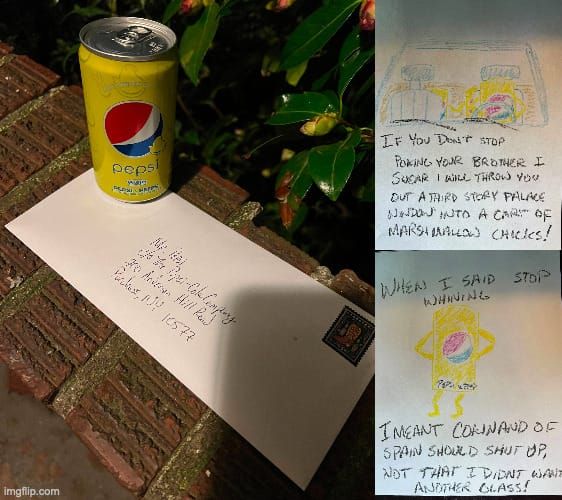 pepsi
c/o The Pepsi-Cola Company
700 Anderson Hill Road
Purchase, NY 10577
IF YOU DON'T STOP
POKING YOUR BROTHER I
SWEAR I WILL THROW YOU
OUT A THIRD STORY PALACE
WINDOW INTO A CART OF
MARSHMALLOW CHICKS!
WHEN I SAID STOP
WHINING
PEPSI
I MEANT OF
SPAIN SHOULD SHUT UP,
NOT THAT I DIDNT WANT
ANOTHER GLASS!
imgflip.com